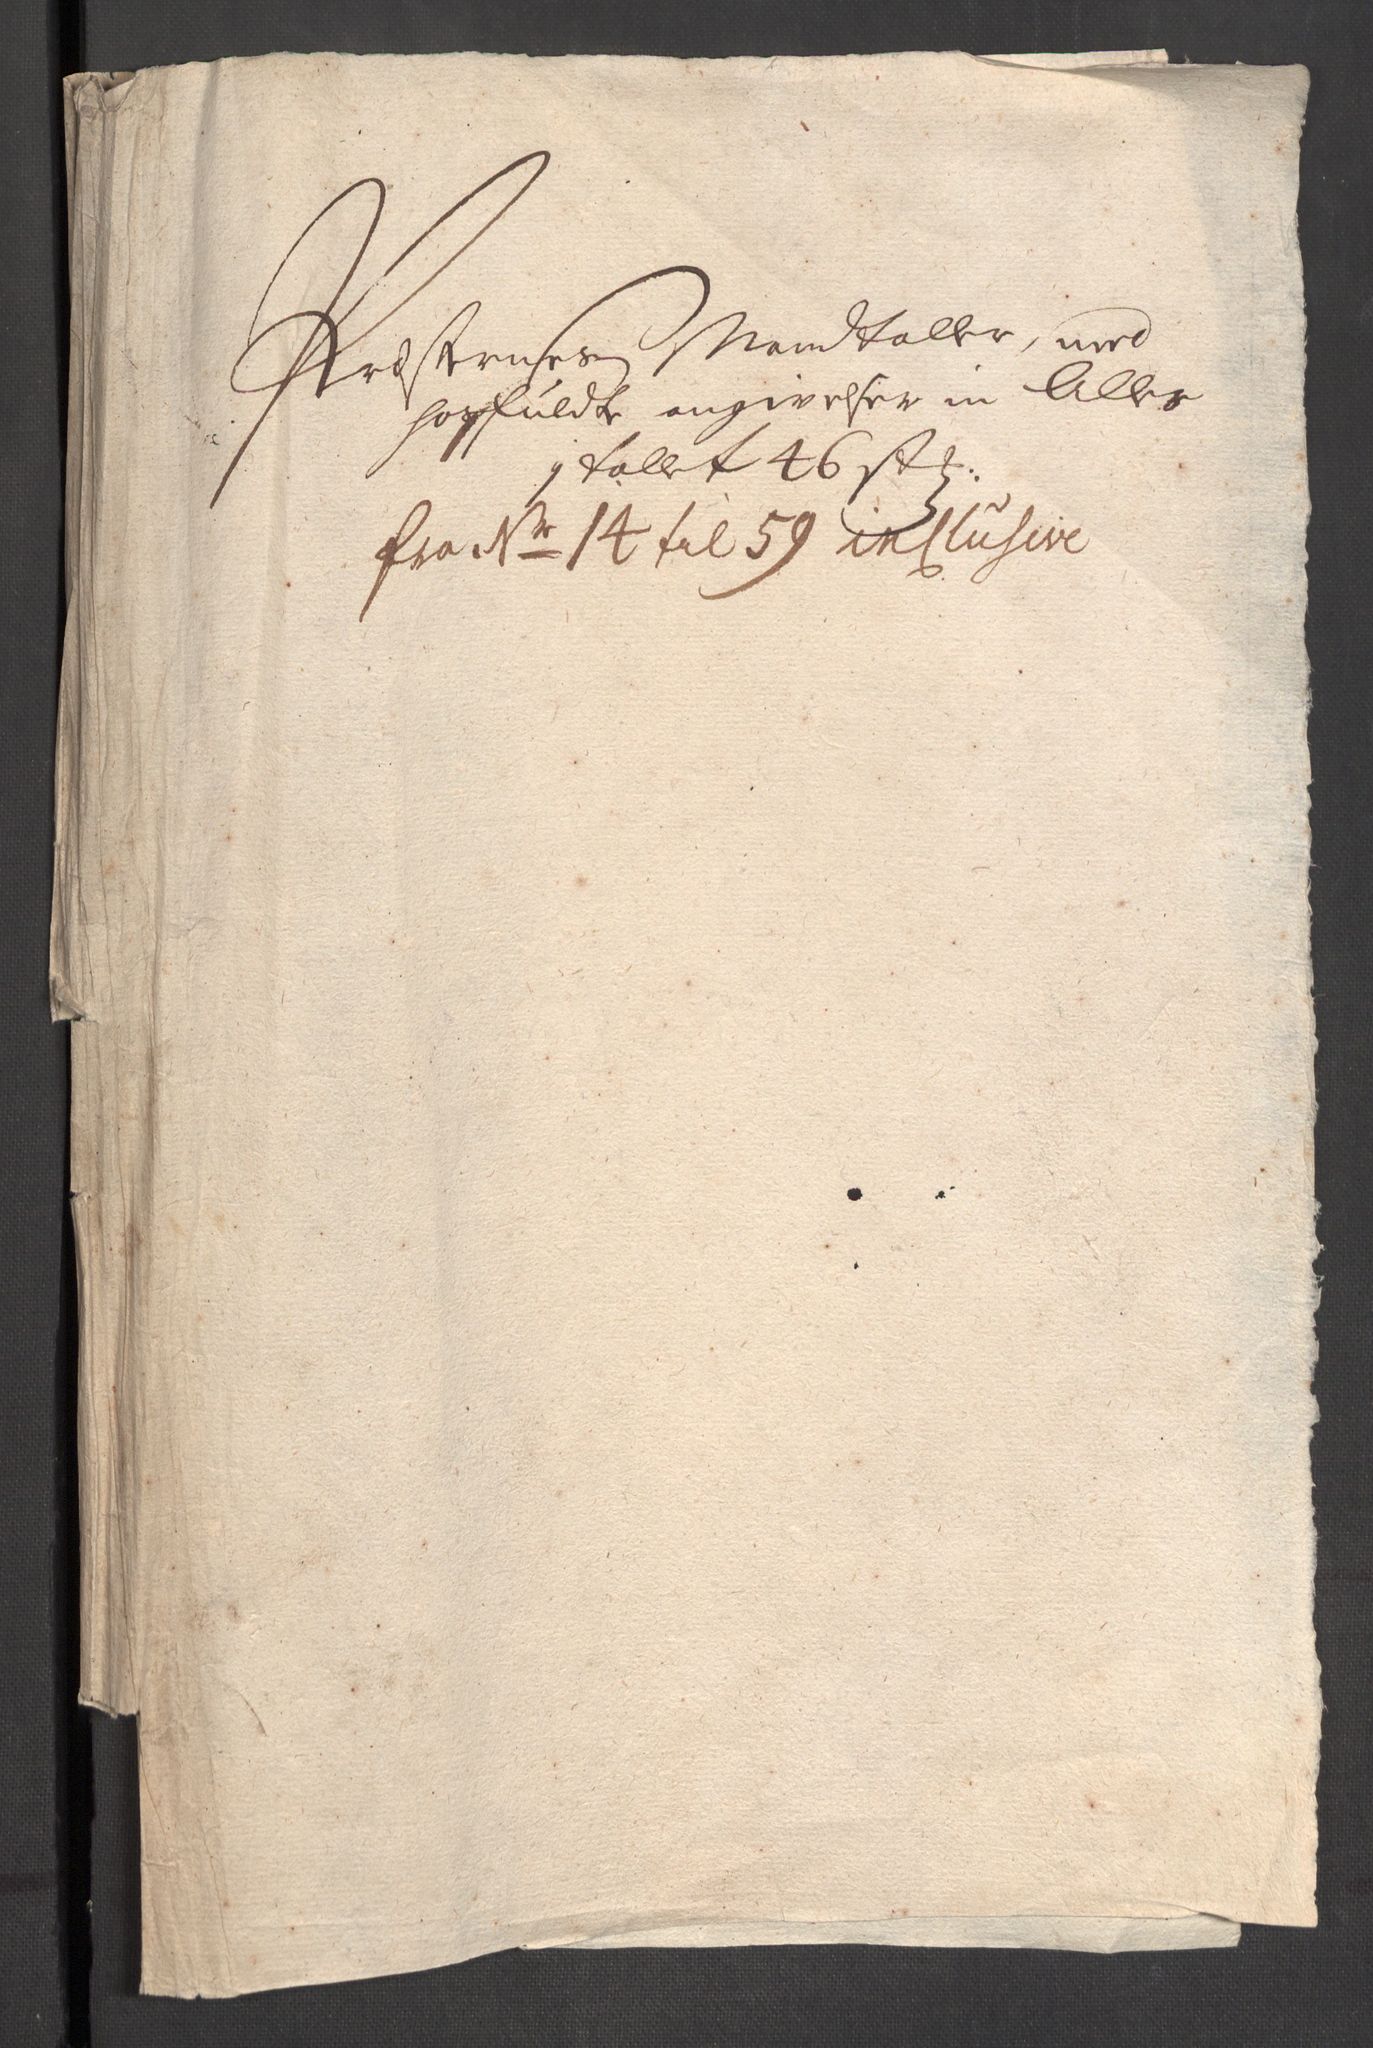 Præsternes Mandtaller, med
hosfuldte angivelser in Alles
j tallet 46 st:
fra Nr 14 til 59 inclusive